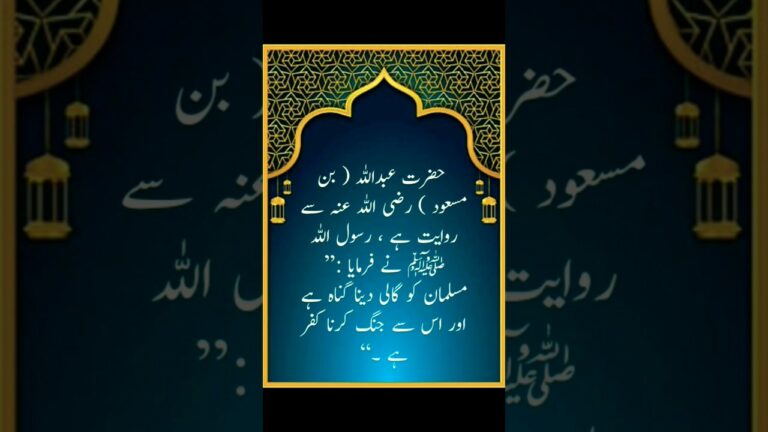 حضرت عبداللہ ( بن
مسعود ) رضی اللہ عنہ سے
روایت ہے ، رسول اللہ
ﷺ نے فرمایا :”
مسلمان کو گالی دینا گناہ ہے
اور اس سے جنگ کرنا کفر
ہے ۔“